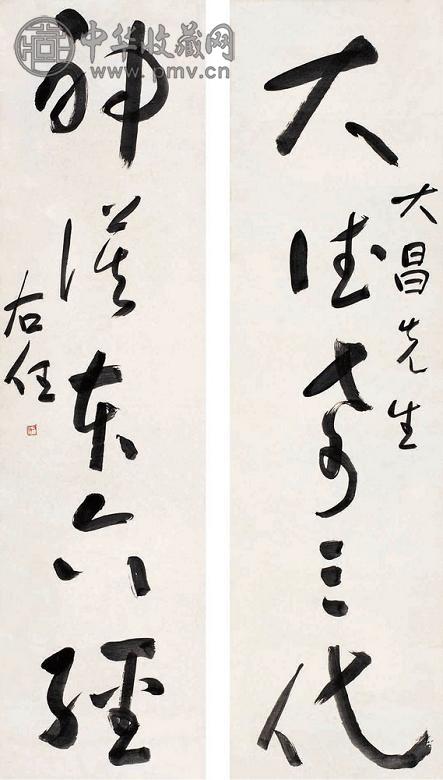 中华收藏网
www.pmv.cn
大德三代
大昌先生
神謨本六經
右任